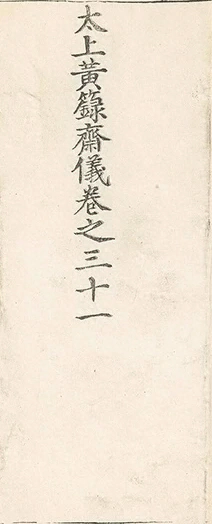 太上黃籙齋儀卷之三十一